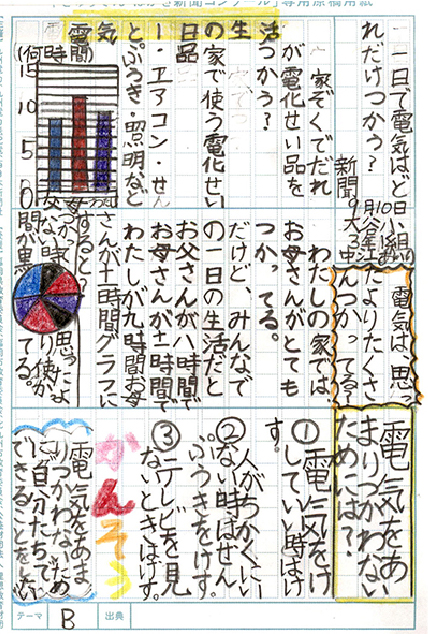 電気と生活
一日で電気はど
れだけつかう?
新聞
9月10日
家ぞくでだれ
が電化せい品を
つかう?
の家で使う電化せい
品
ー・エアコン・せん
ぷうき・照明など
(何時間)
15
10
5
0
電気は、思っ
たよりたくさ
んつかってる?
わたしの家では
お母さんがとても
つかってる。
だけど、みんなで
の一日の生活だと
お父さんが八時間で
お母さんが十一時間で
わたしが九時間お母
さんが十一時間グラフに
すると?
思ったよ
り使か
間が
ってる。
電気をあ
まりつかわない
ためには?
①電気をけ
していい時はけ
す。
②人がちかくにい
ない時はせん
ぷうきをけす。
③テレビを見
ないときはけす。
かんそう
電気をあま
りつかわないため
に自分たちで
できることをしたい
テーマ
B
出典